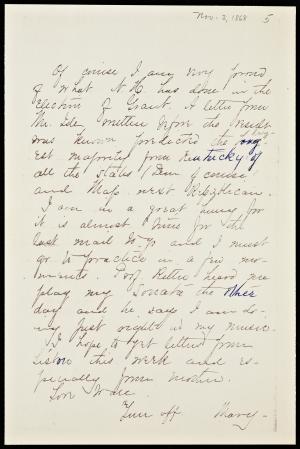 Nov. 3, 1868 5
Of course I am very proud
of what N.H. has done in the
Election of Grant. A letter from
Mr. written before the result
was known predicted the larg-
est majority from Kentucky of
all the States (Dem of course
and Mass. next Republican.
I am in a great hurry for
it is almost time for the
last mail to go and I must
go to practice in a few mo-
ments. Prof heard me
play my Sonata the other
day and he says I am do-
ing just right in my music.
I hope to get letters from
this week and es-
pecially from mother.
Love
off Mary-